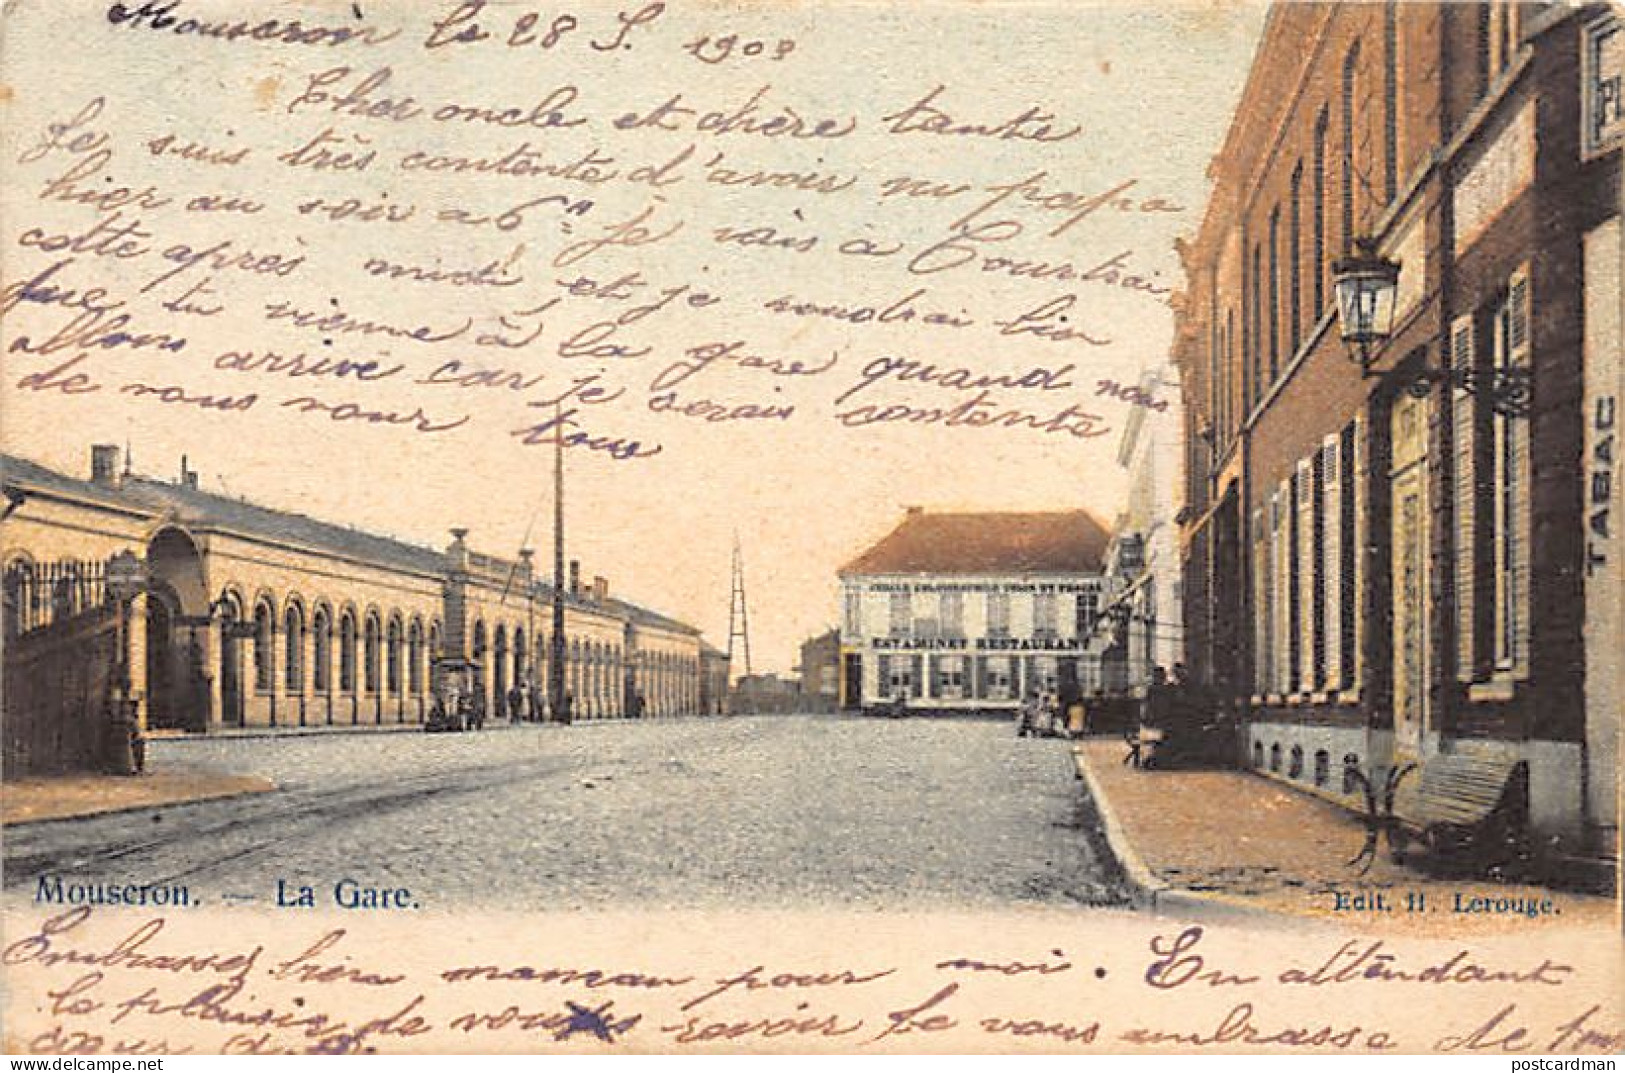 Mouscron le 28 S. 1903
Cher oncle et chère tante
Je suis très contente d'avoir vu papa
hier au soir a 6 h je vais à Courtrai
cette après midi et je voudrai bien
que tu vienne à la gare quand nous
allons arrivé car je serais contente
de vous voir tous
CERCLE COLOMBOPHILE UNION ET PROGRÈS
ESTAMINET RESTAURANT
TABAC
Mouscron. — La Gare.
Edit. H. Lerouge.
Embrassez bien maman pour moi. En attendant
le plaisir de vous revoir Je vous embrasse de tout
cœur
postcardman